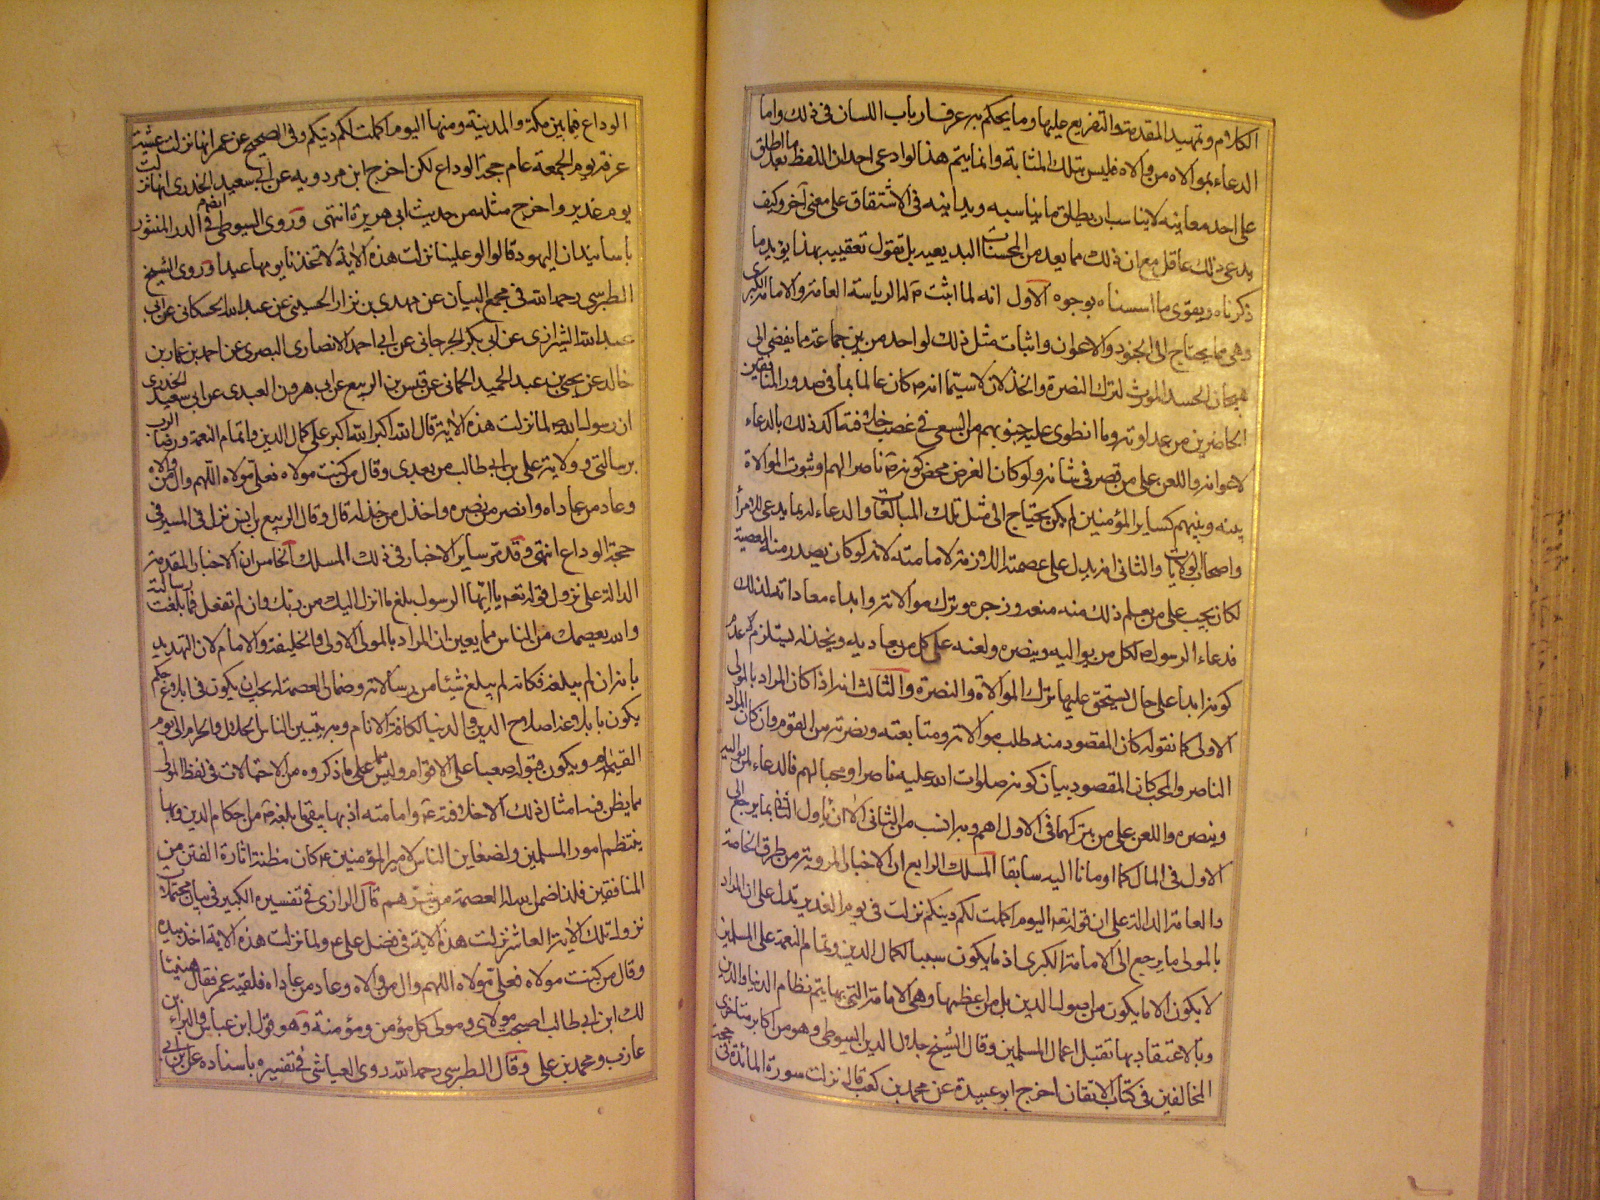 الكلام وتمهيد المقدمة والتفريع عليها وما يحكم به عرف ارباب اللسان في ذلك واما
الدعاء بموالاه من والاه فليس بتلك المثابة وانما يتم هذا لو ادعى احد ان اللفظ بعد ما اطلق
على احد معانيه لا يناسب ان يطلق ما يناسبه ويدانيه في الاشتقاق على معنى آخر وكيف
يدعى ذلك عاقل مع ان ذلك مما يعد من المحسنات البديعية بل نقول تعقيبه بهذا يؤيد ما
ذكرناه ويقوى ما اسسناه بوجوه الاول انه لما اثبت ص له الرياسة العامة والامامة الكبرى
وهي مما يحتاج الى الجنود والاعوان واثبات مثل ذلك لواحد من بين جماعة مما يفضي الى
هيجان الحسد المورث لترك النصرة والخذلان لا سيما انه ص كان عالما بما في صدور المنافقين
الحاضرين من عداوته وما انطوى عليه جنوبهم من السعي في غصب خلافته اكد ذلك بالدعاء
لاعوانه واللعن على من قصر في شانه ولو كان الغرض محض كونه ص ناصرا لهم او ثبوت الموالاة
بينه وبينهم كساير المؤمنين لم يكن يحتاج الى مثل تلك المبالغات والدعاء له بما يدعى للامراء
واصحاب الولايات والثاني انه يدل على عصمته اللازمة لامامته لانه لو كان يصدر منه المعصية
لكان يجب على من يعلم ذلك منه منعه وزجره وترك موالاته وابداء معاداته لذلك
فدعاء الرسول ص لكل من يواليه وينصره ولعنه على كل من يعاديه ويخذله يستلزم عدم
كونه ابدا على حال يستحق عليها ترك الموالاة والنصرة والثالث انه اذا كان المراد بالمولى
الاولى كما نقوله كان المقصود منه طلب موالاته ومتابعته ونصرته من القوم وان كان المراد
الناصر والمحب كان المقصود بيان كونه صلوات الله عليه ناصرا ومحبا لهم فالدعاء لمن يواليه
وينصره واللعن على من يتركهما في الاول اهم وبه انسب من الثاني الا ان يأول الثاني بما يرجع الى
الاول في المال كما اومأنا اليه سابقا المسلك الرابع ان الاخبار المروية من طرق الخاصة
والعامة الدالة على ان قوله تعه اليوم اكملت لكم دينكم نزلت في يوم الغدير تدل على ان المراد
بالمولى ما يرجع الى الامامة الكبرى اذ ما يكون سببا لكمال الدين وتمام النعمة على المسلمين
لا يكون الا ما يكون من اصول الدين بل من اعظمها وهي الامامة التي بها يتم نظام الدنيا والدين
وبالاعتقاد بها تقبل اعمال المسلمين وقال الشيخ جلال الدين السيوطي وهو من اكابر متاخرى
المخالفين في كتاب الاتقان اخرج ابو عبيدة عن محمد بن كعب قال نزلت سورة المائدة في حجة
الوداع فيما بين مكة والمدينة ومنها اليوم اكملت لكم دينكم وفي الصحيح عن عمر انها نزلت عشية
عرفة يوم الجمعة عام حجة الوداع لكن اخرج ابن مردويه عن ابي سعيد الخدري انها نزلت
يوم غدير واخرج مثله من حديث ابي هريرة انتهى وروى السيوطي ايضا في الدر المنثور
باسانيد ان اليهود قالوا لو علينا نزلت هذه الآية لاتخذنا يومها عيدا وروى الشيخ
الطبرسي رحمه الله في مجمع البيان عن مهدي بن نزار الحسيني عن عبد الله الحسكاني عن ابي
عبد الله الشيرازي عن ابي بكر الجرجاني عن ابي احمد الانصاري البصري عن احمد بن عمار بن
خالد عن يحيى بن عبد الحميد الحماني عن قيس بن الربيع عن ابي هرون العبدي عن ابي سعيد الخدري
ان رسول الله لما نزلت هذه الآية قال الله اكبر الله اكبر على كمال الدين واتمام النعمة ورضا الرب
برسالتي وولاية علي بن ابي طالب من بعدي وقال من كنت مولاه فعلي مولاه اللهم وال من والاه
وعاد من عاداه وانصر من نصره واخذل من خذله قال وقال الربيع بن انس نزل في المسير في
حجة الوداع انتهى وقد مر ساير الاخبار في ذلك المسلك الخامس ان الاخبار المقدمة
الدالة على نزول قوله تعه يا ايها الرسول بلغ ما انزل اليك من ربك وان لم تفعل فما بلغت رسالته
والله يعصمك من الناس مما يعين ان المراد بالمولى الاولى والخليفة والامام لان التهديد
بانه ان لم يبلغه فكانه لم يبلغ شيئا من رسالاته وضمان العصمة له يجب ان يكون في ابلاغ حكم
يكون بابلاغه اصلاح الدين والدنيا لكافة الانام وبه يتبين الناس الحلال والحرام الى يوم
القيمة ويكون قبوله صعبا على الاقوام وليس على ما ذكروه من الاحتمالات في لفظ المولى
مما يظن فيه امثال ذلك الا خلافته ع وامامته اذ بها يبقى ما بلغه ص من احكام الدين وبها
ينتظم امور المسلمين ولضغاين الناس لامير المؤمنين ع كان مظنة اثارة الفتن من
المنافقين فلذا ضمن الله له العصمة من شرهم قال الرازي في تفسيره الكبير في بيان محتملات
نزول تلك الآية العاشر نزلت هذه الآية في فضل علي ع ولما نزلت هذه الآية اخذ بيده
وقال من كنت مولاه فعلي مولاه اللهم وال من والاه وعاد من عاداه فلقيه عمر فقال هنيئا
لك ابن ابي طالب اصبحت مولاي ومولى كل مؤمن ومؤمنة وهو قول ابن عباس والبراء بن
عازب ومحمد بن علي وقال الطبرسي رحمه الله روى العياشي في تفسيره باسناده عن ابن ابي